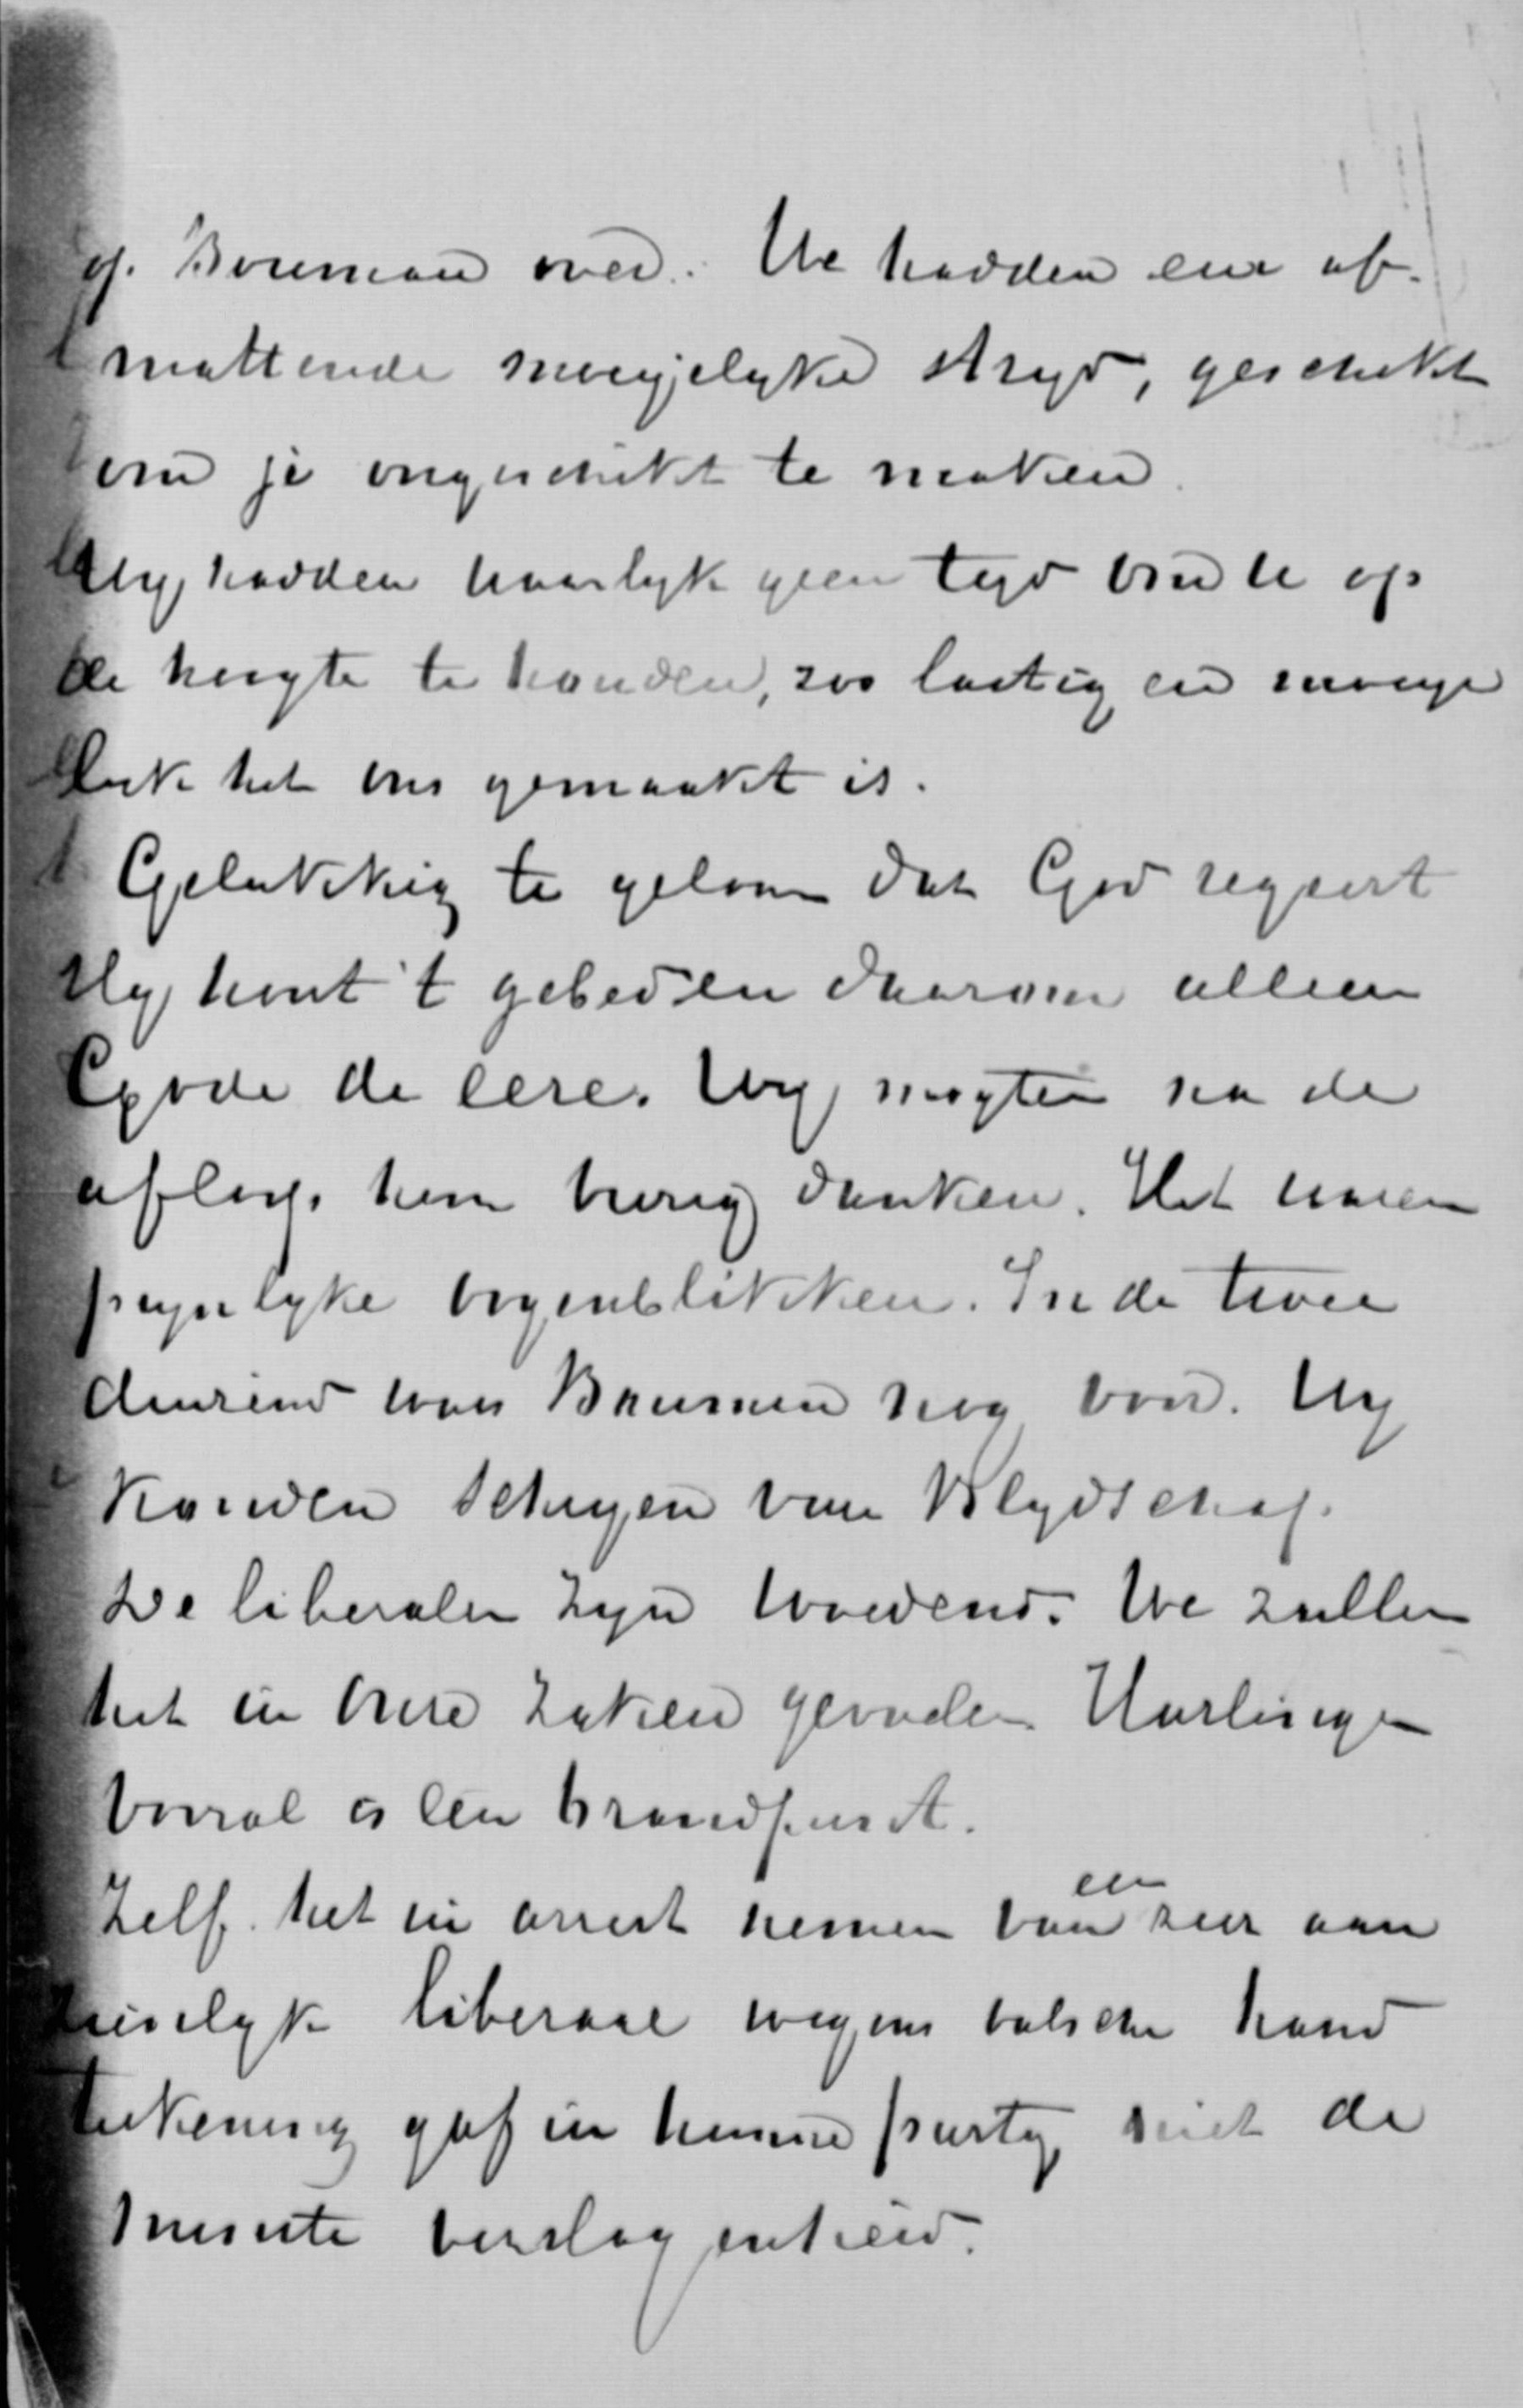 op Bouman over. We hadden een af-
mattende moeyelyke stryd, geschikt
om je ongeschikt te maken.
Wy hadden haarlyk geen tyd om U op
de hoogte te houden, zoo lastig en moeye
lyk het ons gemaakt is.
Gelukkig te geloven dat God regeert
Hy hoort 't gebed en daarom alleen
Gode de eere. Wy mogten na de
afloop hem vurig danken. Het waren
pynlyke oogenblikken. In de twee
duizend was Bauman nog voor. Wy
konden schreyen van blydschap.
De liberalen zyn woedend. We zullen
het in onze zaken gevoelen. Harlingen
vooral is een brandpunt.
Zelf het in arrest nemen van een zeer aan
zienlyk liberaal wegens valsche hand
tekening gaf in hunne party niet de
minste verslagenheid.